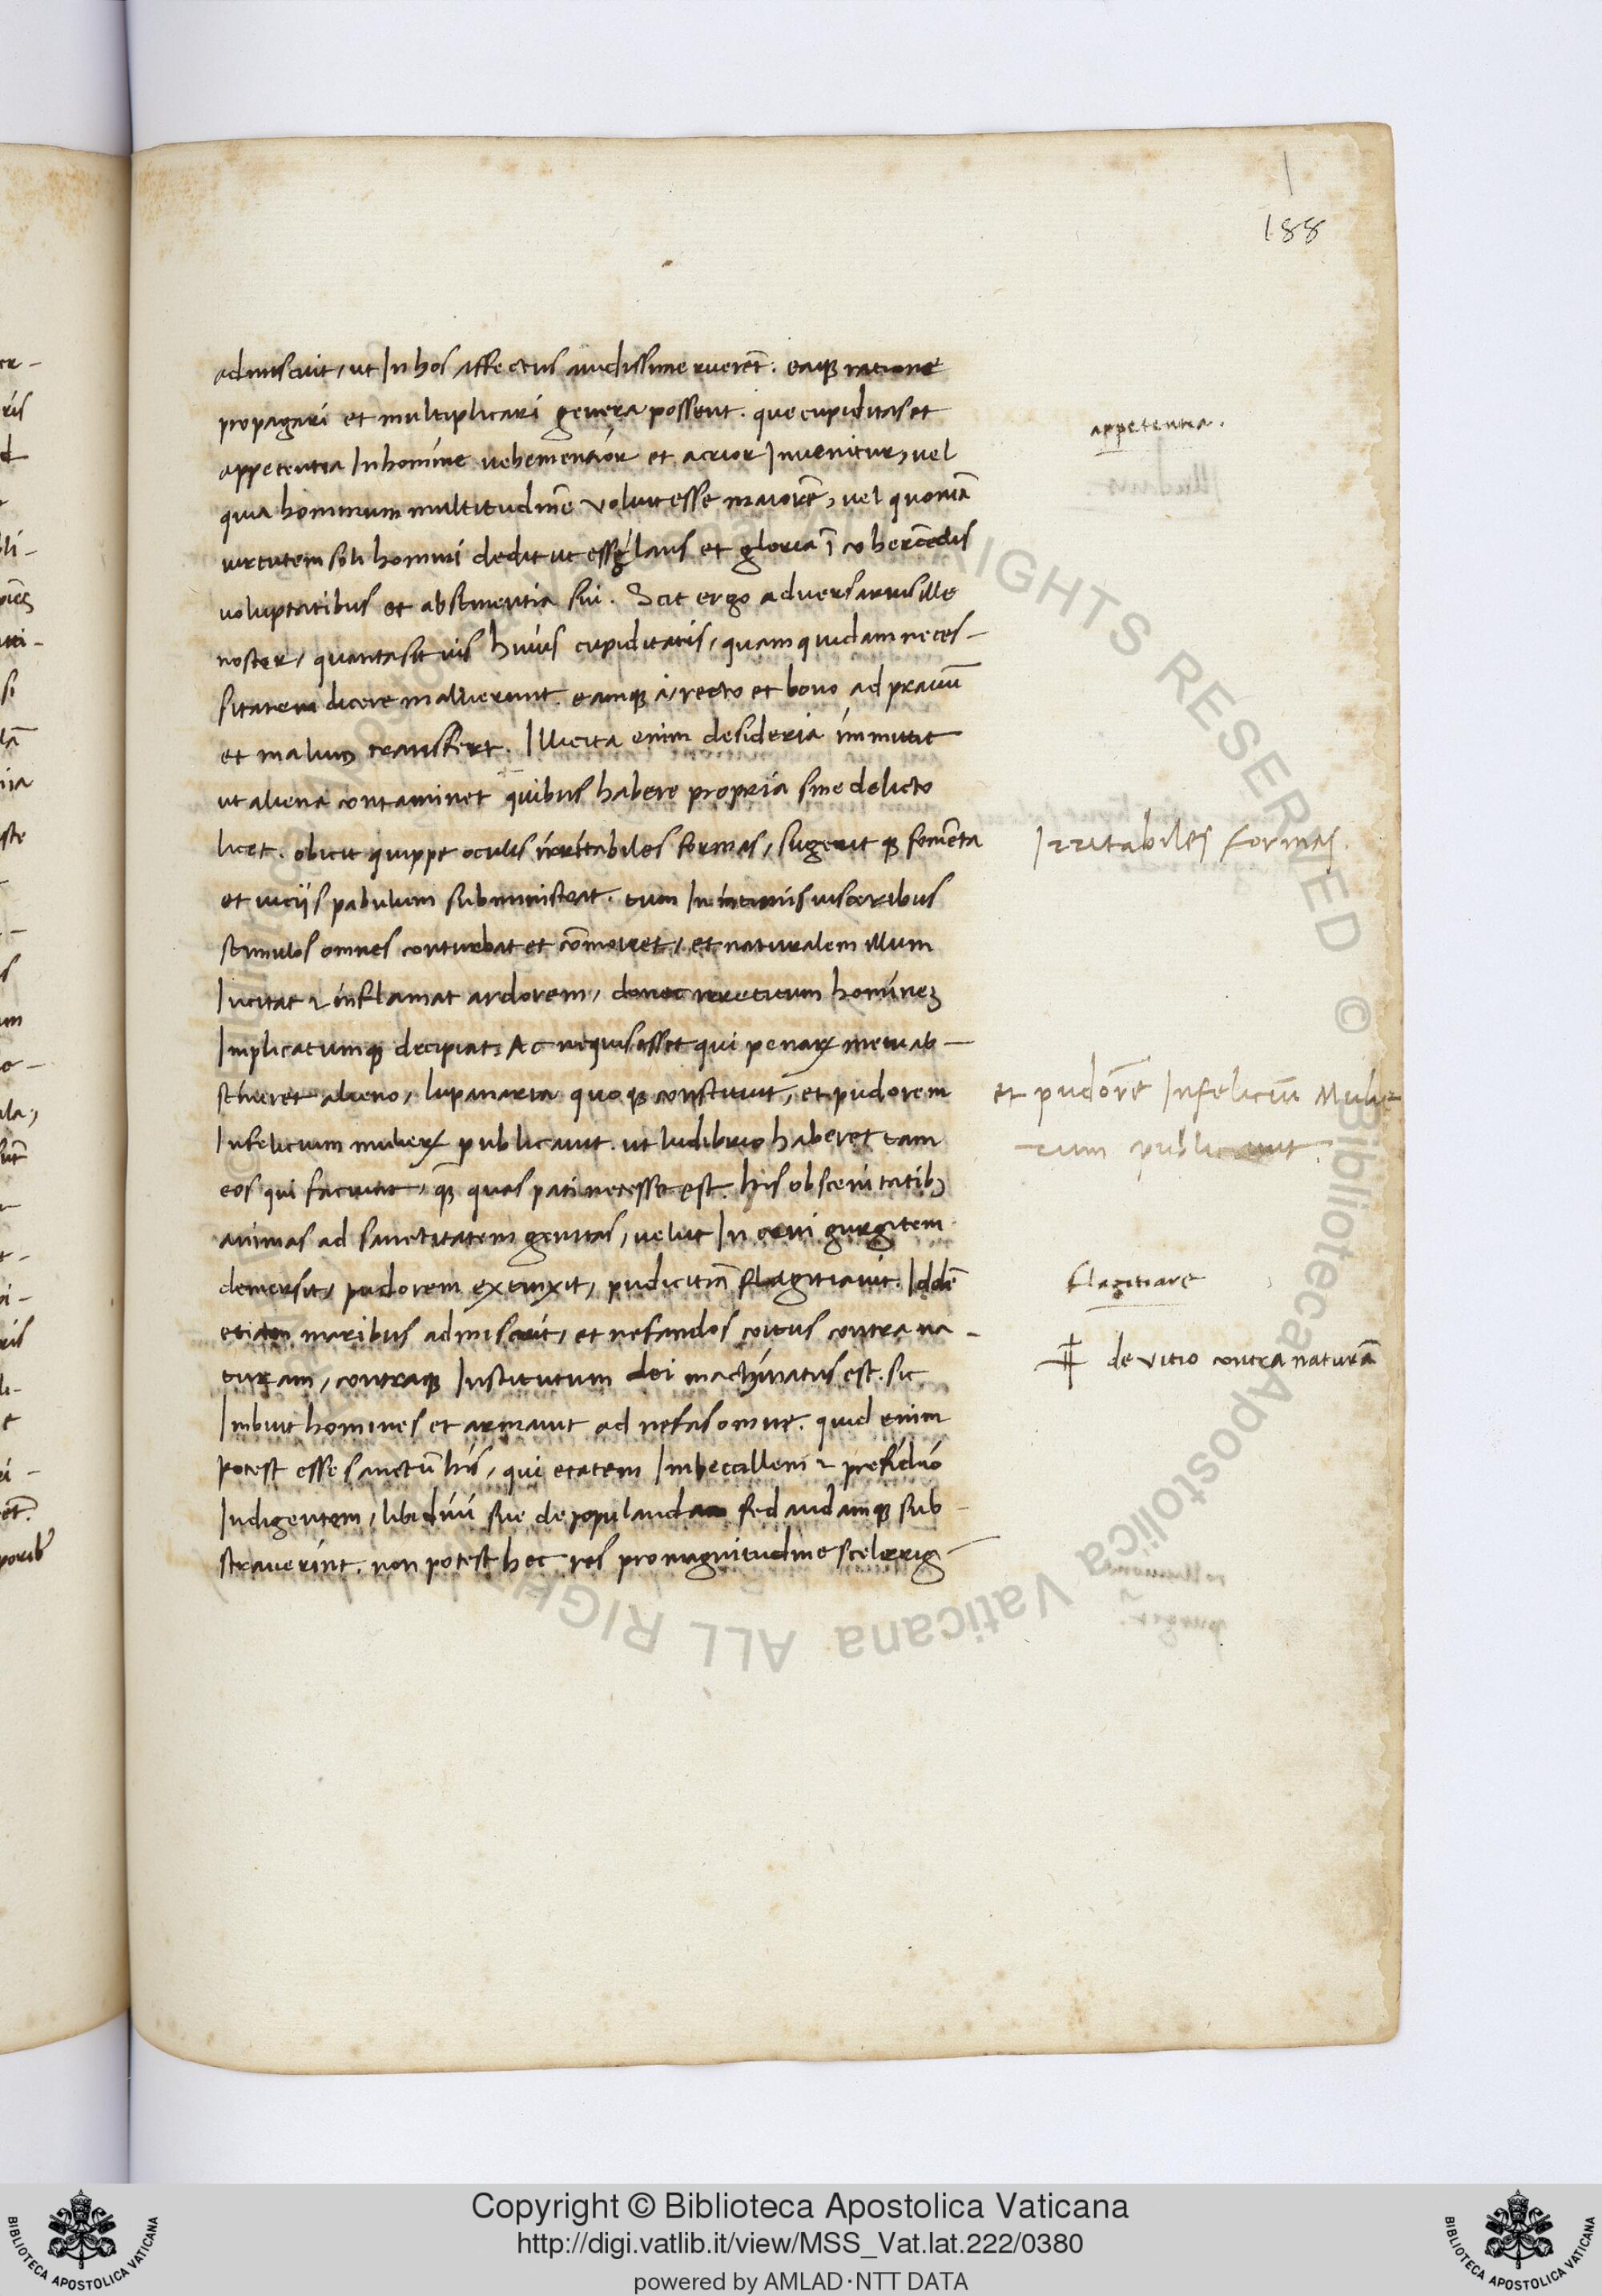 188
admiscuit, ut In hos affectus auidissime ruerẽt. eaq̃ ratione
propagari et multiplicari genera possent. que cupiditas et
appetentia In homine uehementior et acrior Inuenitur, uel
quia hominum multitudinẽ uoluit esse maiorẽ, uel quoniã
uirtutem soli homini dedit ut esset laus et gloria ĩ cohercẽdis
uoluptatibus et abstinentia sui. Scit ergo aduersarius ille
noster, quanta sit uis huius cupiditatis, quam quidam neces-
sitatem dicere maluerunt. eamq̃ a recto et bono ad prauũ
et malum transfert. Illicita enim desideria immittit
ut aliena contaminet quibus habere propria sine delicto
licet. obicit quippe oculis irritabiles formas, sugerit q̃ fomẽta
et uiciis pabulum subministrat. tum In intimis uisceribus
stimulos omnes conturbat et cõmouet, et naturalem illum
Incitat & inflamat ardorem, donec irretitum hominem
Implicatumq̃ decipiat. Ac nequis esset qui penarꝝ metu ab-
stineret alieno, lupinaria quoq̃ constituit, et pudorem
Infelicium mulierꝝ publicauit. ut ludibrio haberet tam
eos qui faciunt, q̃ quas pati necesse est. his obscenitatibꝫ
animas ad sanctitatem genitas, uelut In ceni gurgitem
demersit, pudorem extinxit, pudicitiã flagitiauit. Iddẽ
etiam maribus admiscuit, et nefandos coitus contra na-
turam, contraq̃ Institutum dei machinatus est. sic
Imbuit homines et armauit ad nefas omne. quid enim
potest esse sanctũ his, qui etatem Imbecillem & presidio
Indigentem, libidini sue depopulandam fedandamq̃ sub-
strauerint. non potest hec res pro magnitudine sceleris
appetentia.
Irritabiles formas.
et pudorẽ Infeliciũ Mulie
rum publicauit.
flagitiare
de vitio contra naturã
Copyright © Biblioteca Apostolica Vaticana
http://digi.vatlib.it/view/MSS_Vat.lat.222/0380
powered by AMLAD·NTT DATA
BIBLIOTECA APOSTOLICA VATICANA
BIBLIOTECA APOSTOLICA VATICANA